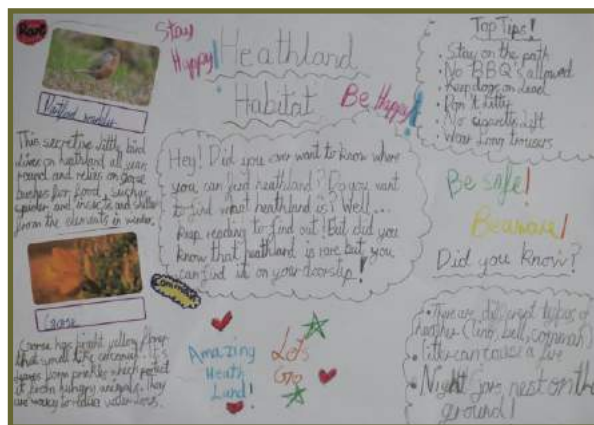 Rare
Stay
Happy!
Heathland
Habitat
Be Happy!
Dartford warbler
This secretive little bird
lives on heathland all year
round and relies on gorse
bushes for food, such as
spider and insects and shelter
from the elements in winter.
Common
Goarse
Goarse has bright yellow flower
that smell like coconut. It's
leaves form prickles which protect
it from hungry animals. They
are waxy to reduce water loss.
Hey! Did you ever want to know where
you can find heathland? Do you want
to find what heathland is? Well...
keep reading to find out! But did you
know that heathland is rare but you
can find it on your doorstep!
Amazing
Heath
Land!
Lets
Go
Top Tips!
. Stay on the path
. No BBQ's allowed
. Keep dogs on lead
. Don't litter
. No cigarette lift
. Wear long trousers
Be safe!
Beaware!
Did you know?
• There are different types of
heather (ling, bell, common)
• Litter can cause a fire
• Night jars nest on the
ground!